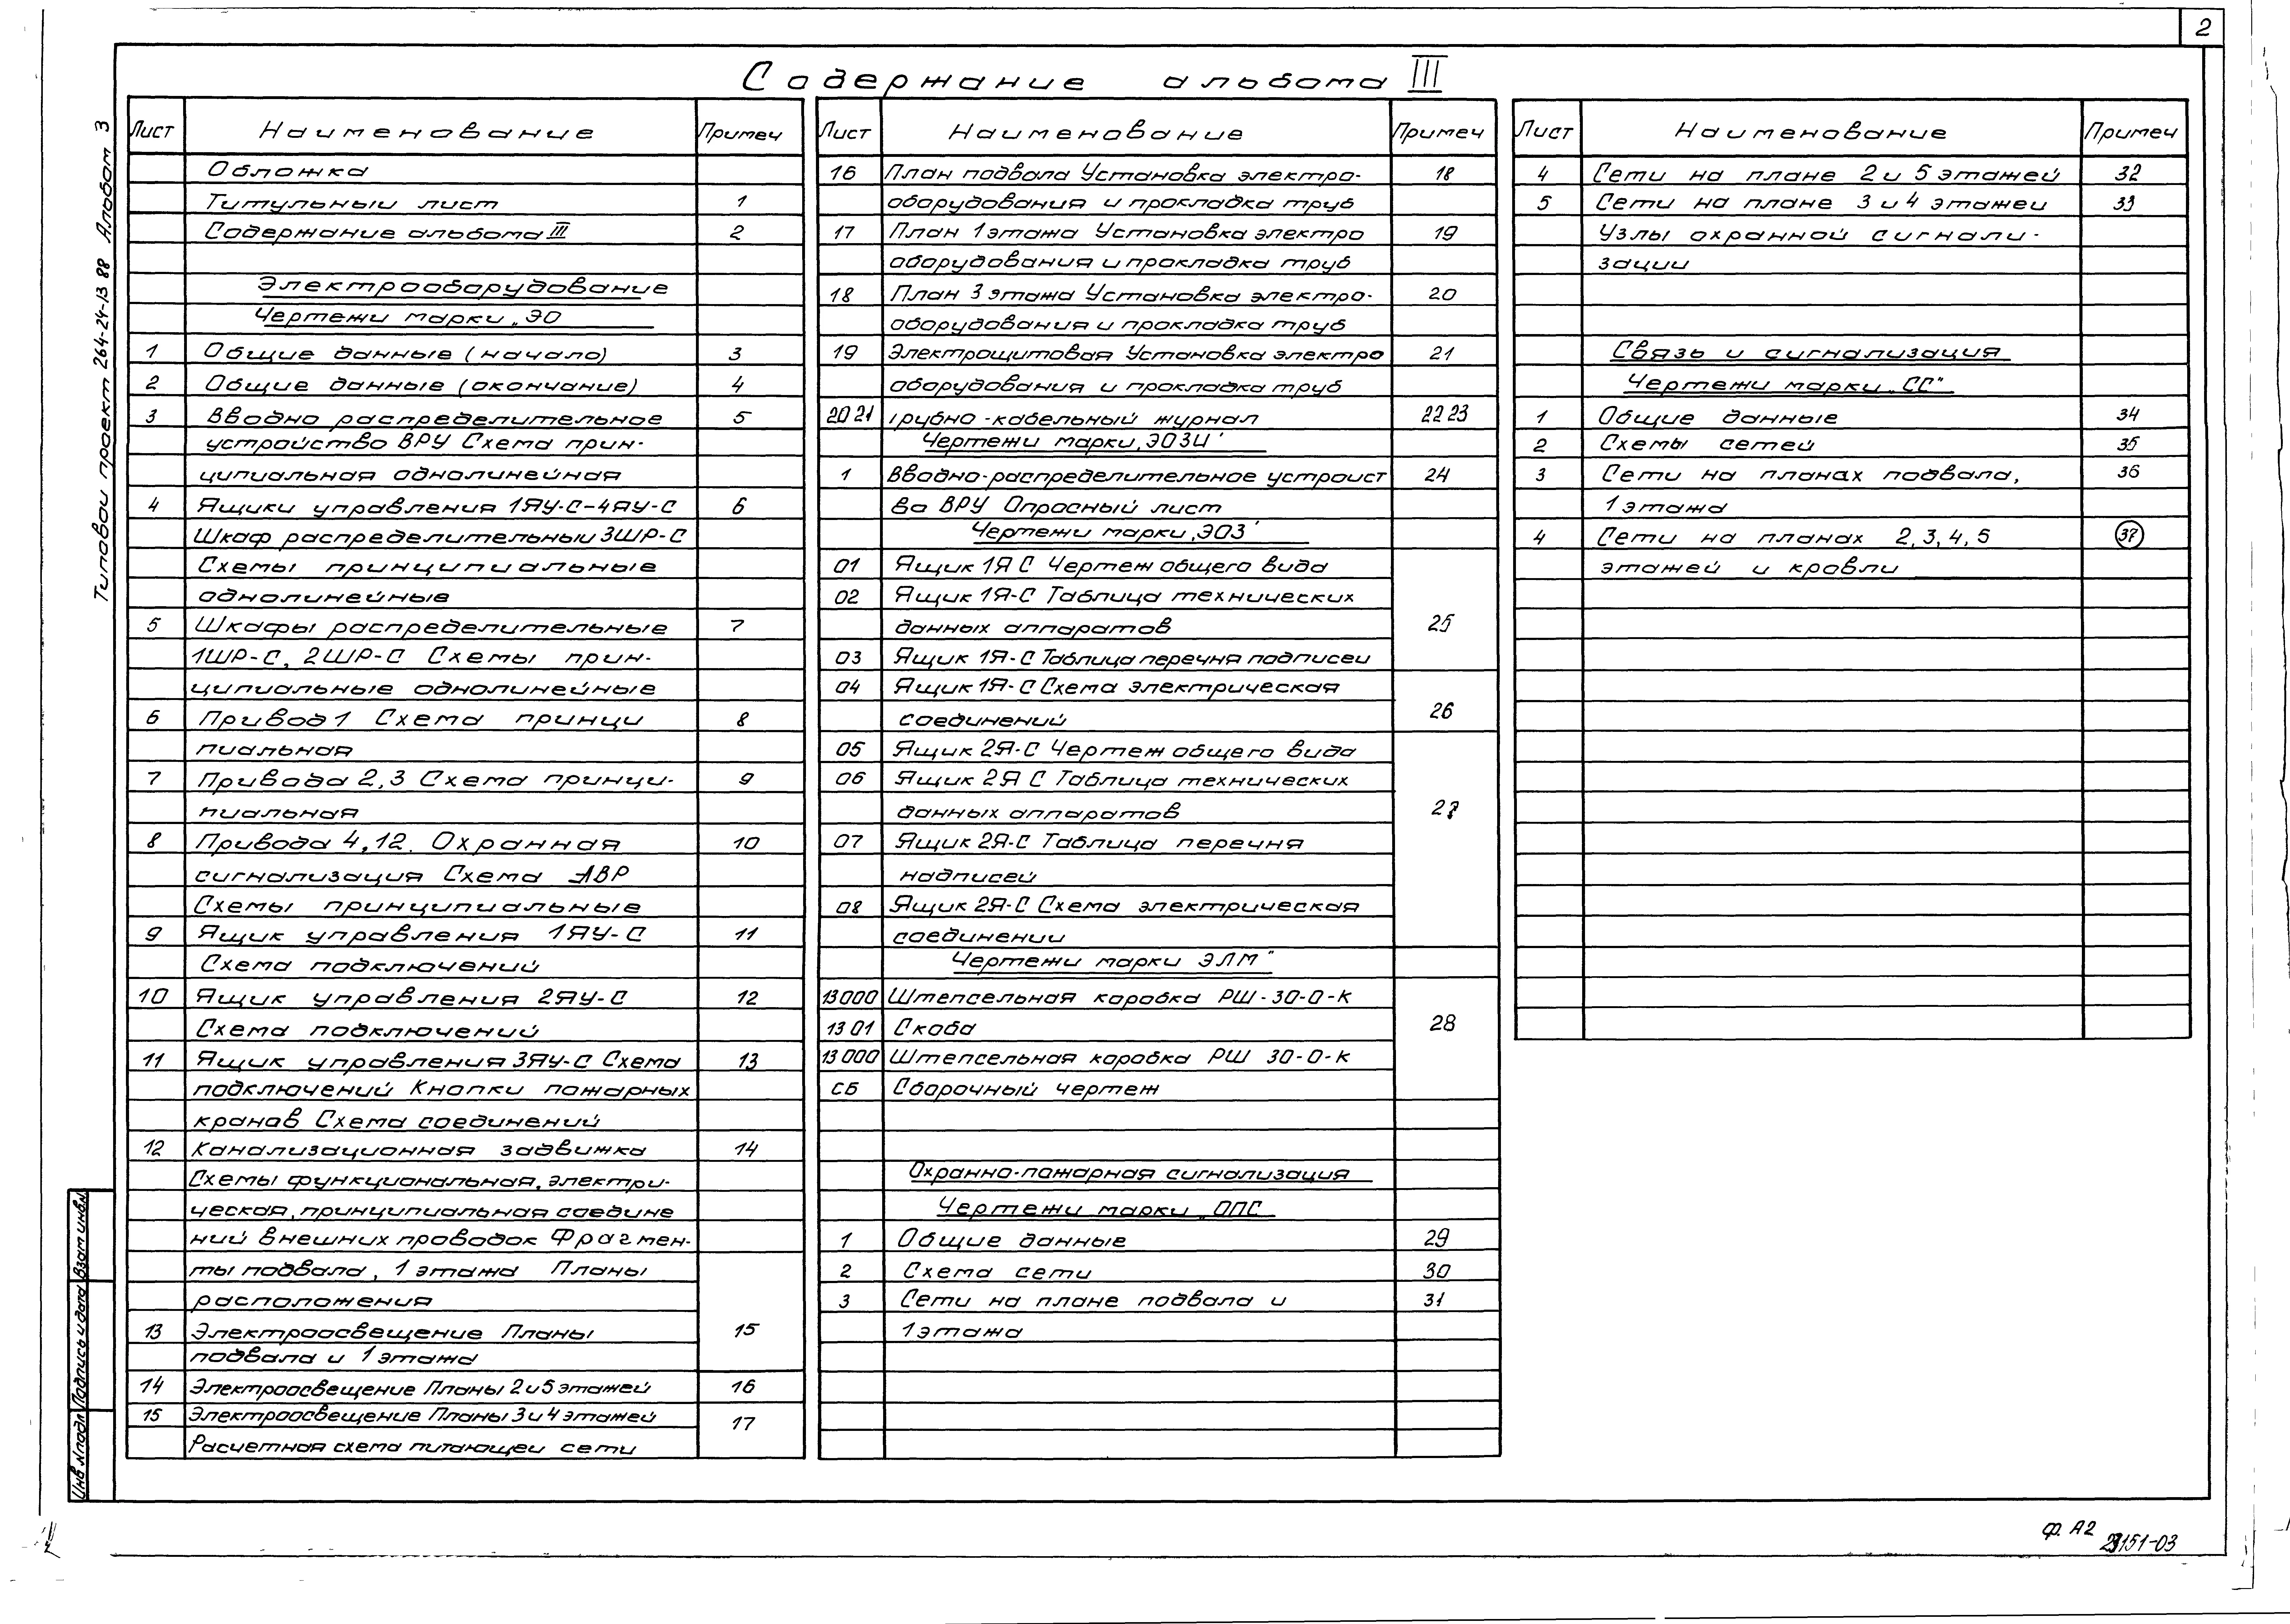 2
Содержание альбома III
Типовой проект 264-24-13 88 Альбом 3
Лист Наименование Примеч
Обложка
Титульный лист 1
Содержание альбома III 2
Электрооборудование
Чертежи марки „ЭО
1 Общие данные (начало) 3
2 Общие данные (окончание) 4
3 Вводно распределительное 5
устройство ВРУ Схема прин-
ципиальная однолинейная
4 Ящики управления 1ЯУ-С-4ЯУ-С 6
Шкаф распределительный 3ШР-С
Схемы принципиальные
однолинейные
5 Шкафы распределительные 7
1ШР-С, 2ШР-С Схемы прин-
ципиальные однолинейные
6 Привод 1 Схема принци 8
пиальная
7 Привода 2,3 Схема принци- 9
пиальная
8 Привода 4,12. Охранная 10
сигнализация Схема АВР
Схемы принципиальные
9 Ящик управления 1ЯУ-С 11
Схема подключений
10 Ящик управления 2ЯУ-С 12
Схема подключений
11 Ящик управления 3ЯУ-С Схема 13
подключений Кнопки пожарных
кранов Схема соединений
12 Канализационная задвижка 14
Схемы функциональная, электри-
ческая, принципиальная соедине
ний внешних проводок Фрагмен-
ты подвала, 1 этажа Планы
расположения
13 Электроосвещение Планы 15
подвала и 1 этажа
14 Электроосвещение Планы 2 и 5 этажей 16
15 Электроосвещение Планы 3 и 4 этажей 17
Расчетная схема питающей сети
Лист Наименование Примеч
16 План подвала Установка электро- 18
оборудования и прокладка труб
17 План 1 этажа Установка электро 19
оборудования и прокладка труб
18 План 3 этажа Установка электро- 20
оборудования и прокладка труб
19 Электрощитовая Установка электро 21
оборудования и прокладка труб
20 21 Трубно-кабельный журнал 22 23
Чертежи марки „ЭОЗИ"
1 Вводно-распределительное устройст 24
во ВРУ Опросный лист
Чертежи марки „ЭОЗ"
01 Ящик 1Я С Чертеж общего вида
02 Ящик 1Я-С Таблица технических
данных аппаратов 25
03 Ящик 1Я-С Таблица перечня надписей
04 Ящик 1Я-С Схема электрическая
соединений 26
05 Ящик 2Я-С Чертеж общего вида
06 Ящик 2Я С Таблица технических
данных аппаратов 27
07 Ящик 2Я-С Таблица перечня
надписей
08 Ящик 2Я-С Схема электрическая
соединений
Чертежи марки ЭЛМ"
13 000 Штепсельная коробка РШ-30-0-К
13 01 Скоба 28
13 000 Штепсельная коробка РШ 30-0-К
СБ Сборочный чертеж
Охранно-пожарная сигнализация
Чертежи марки „ОПС
1 Общие данные 29
2 Схема сети 30
3 Сети на плане подвала и 31
1 этажа
Лист Наименование Примеч
4 Сети на плане 2 и 5 этажей 32
5 Сети на плане 3 и 4 этажей 33
Узлы охранной сигнали-
зации
Связь и сигнализация
Чертежи марки „СС"
1 Общие данные 34
2 Схемы сетей 35
3 Сети на планах подвала, 36
1 этажа
4 Сети на планах 2,3,4,5 37
этажей и кровли
Инв.№подл Подпись и дата Взам инв.№
ф. А2
23151-03